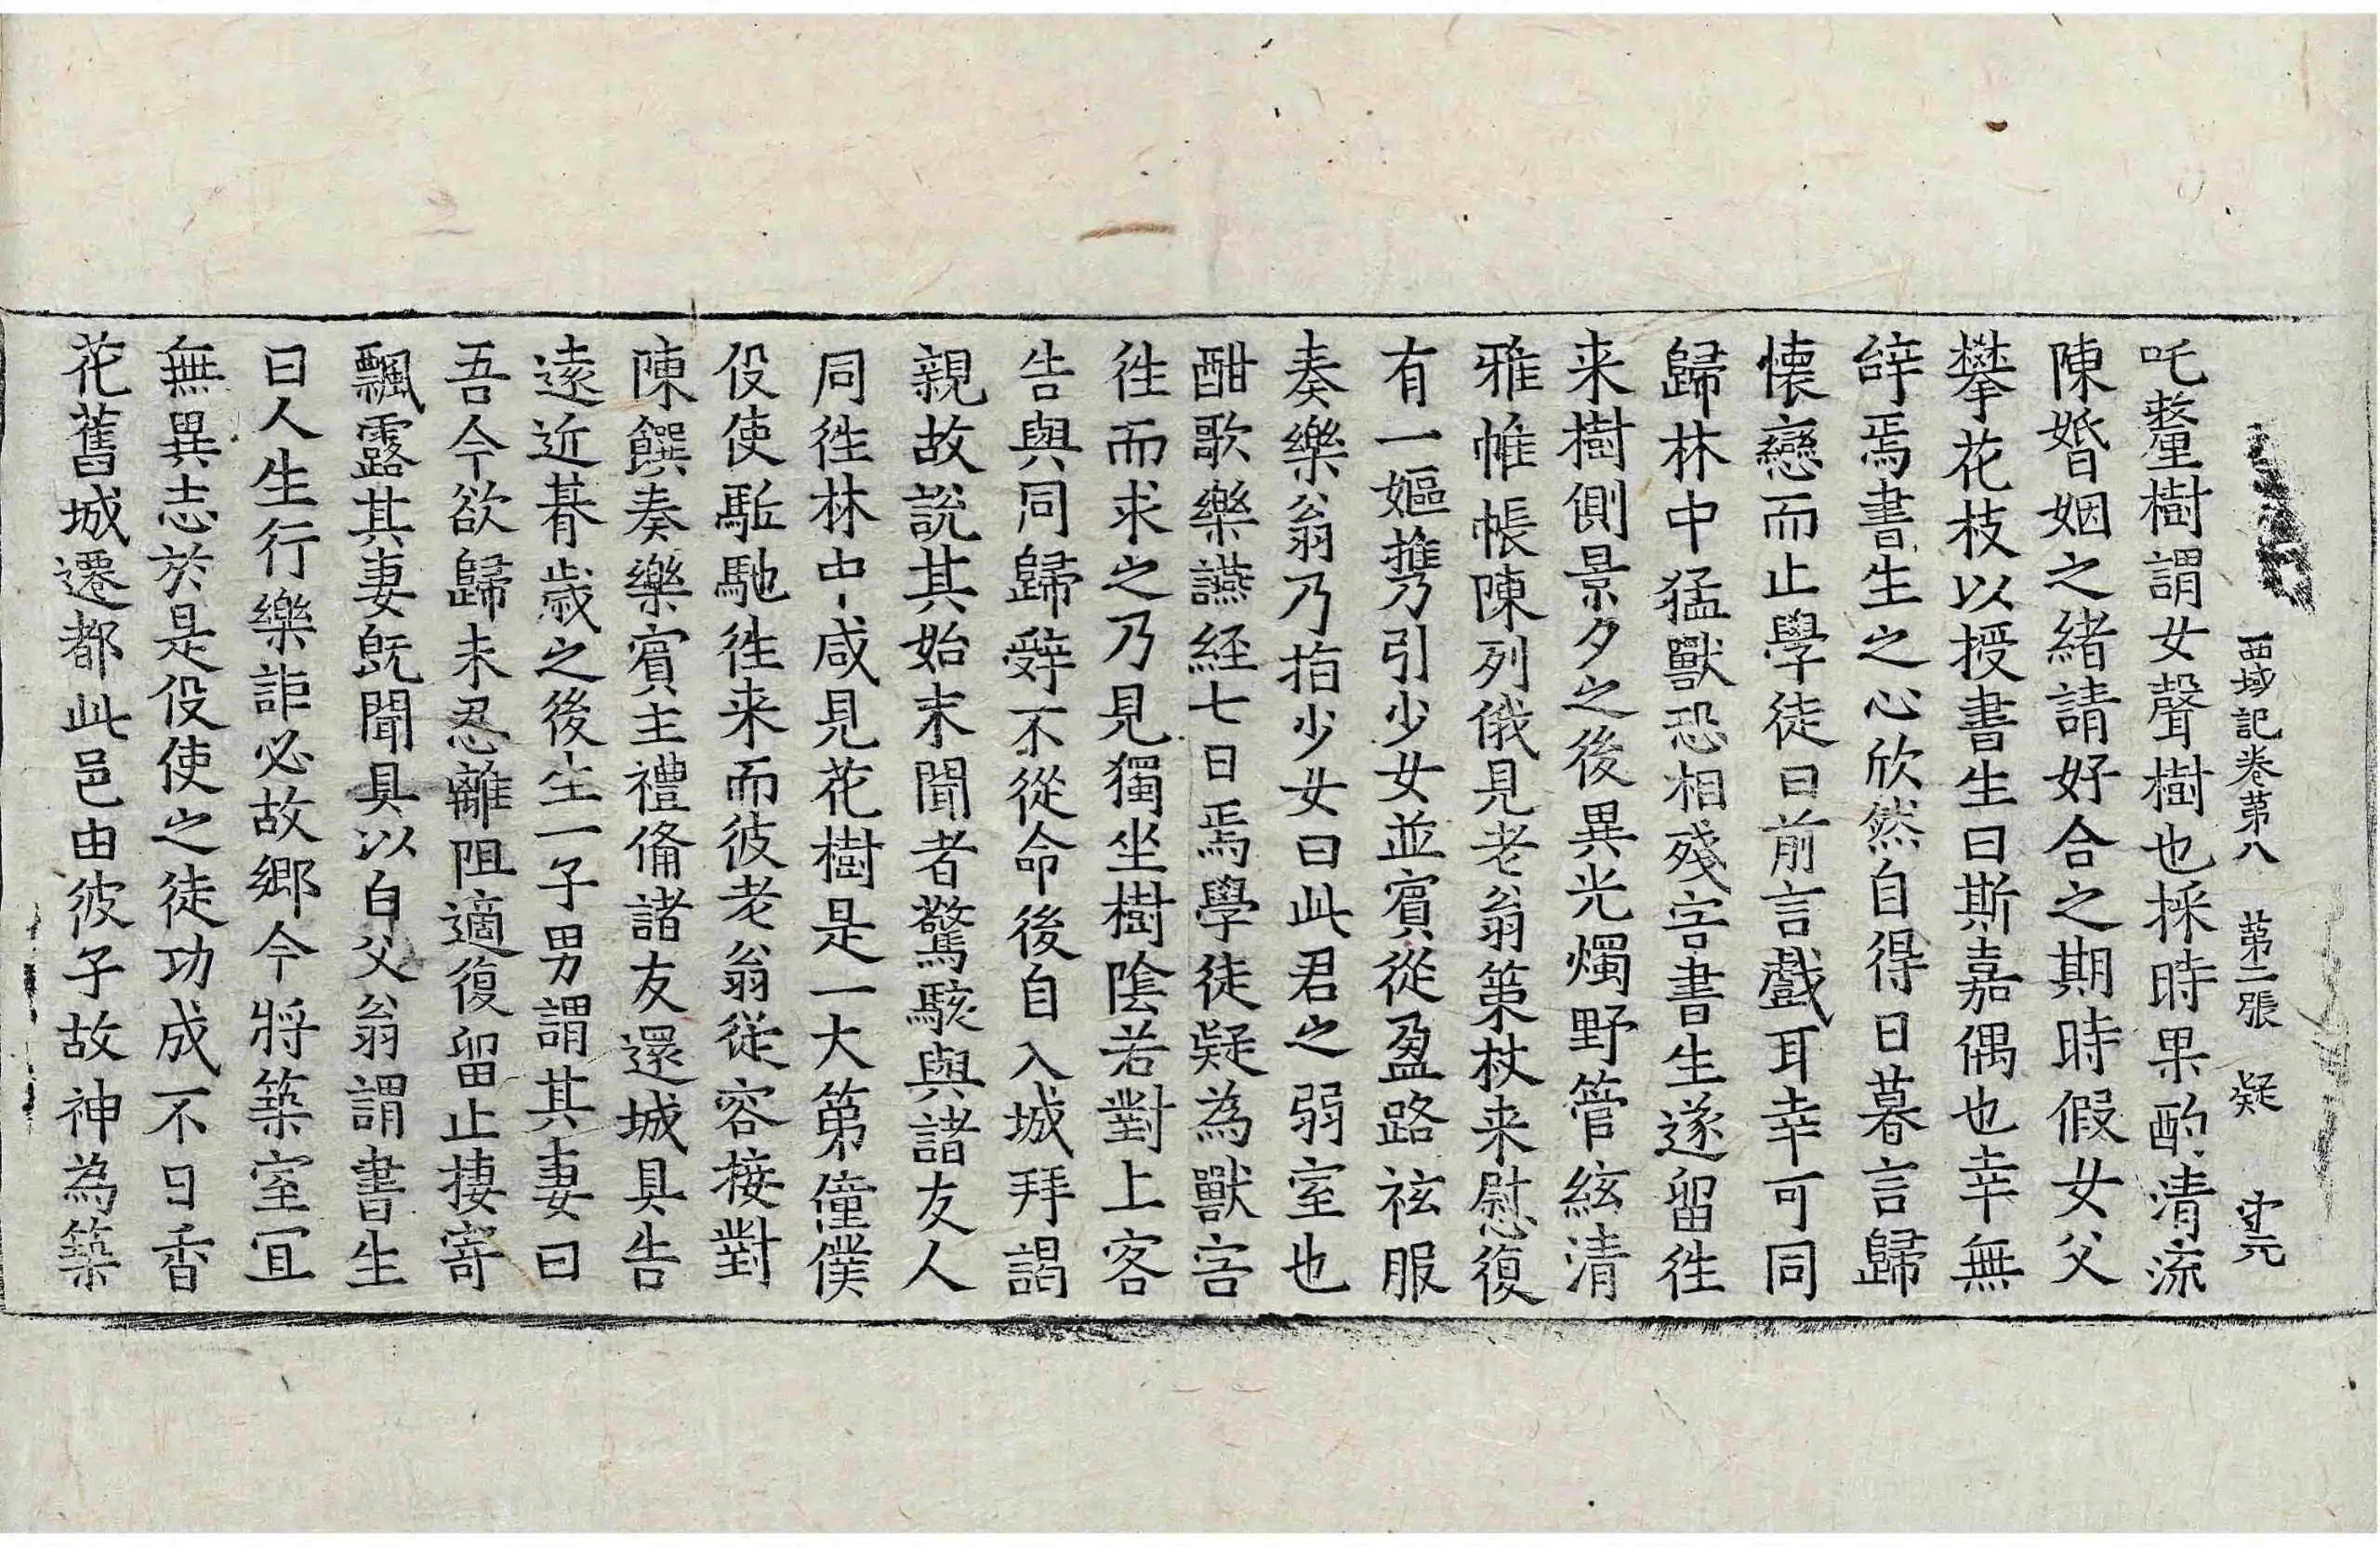 西域記卷第八 第二張 疑 守元
吒釐樹謂女聲樹也採時果酌清流
陳婚姻之緒請好合之期時假女父
攀花枝以授書生曰斯嘉偶也幸無
辝焉書生之心欣然自得日暮言歸
懷戀而止學徒曰前言戲耳幸可同
歸林中猛獸恐相殘害書生遂留徃
来樹側景夕之後異光燭野管絃清
雅帷帳陳列俄見老翁策杖来慰復
有一嫗攜引少女並賓從盈路袨服
奏樂翁乃指少女曰此君之弱室也
酣歌樂讌経七日焉學徒疑為獸害
徃而求之乃見獨坐樹陰若對上客
告與同歸辤不從命後自入城拜謁
親故說其始末聞者驚駭與諸友人
同徃林中咸見花樹是一大第僮僕
役使駈馳徃来而彼老翁從容接對
陳饌奏樂賓主禮俻諸友還城具告
遠近朞歲之後生一子男謂其妻曰
吾今欲歸未忍離阻適復留止捿寄
飄露其妻旣聞具以白父翁謂書生
曰人生行樂詎必故鄉今將築室冝
無異志於是役使之徒功成不日香
花舊城遷都此邑由彼子故神為築